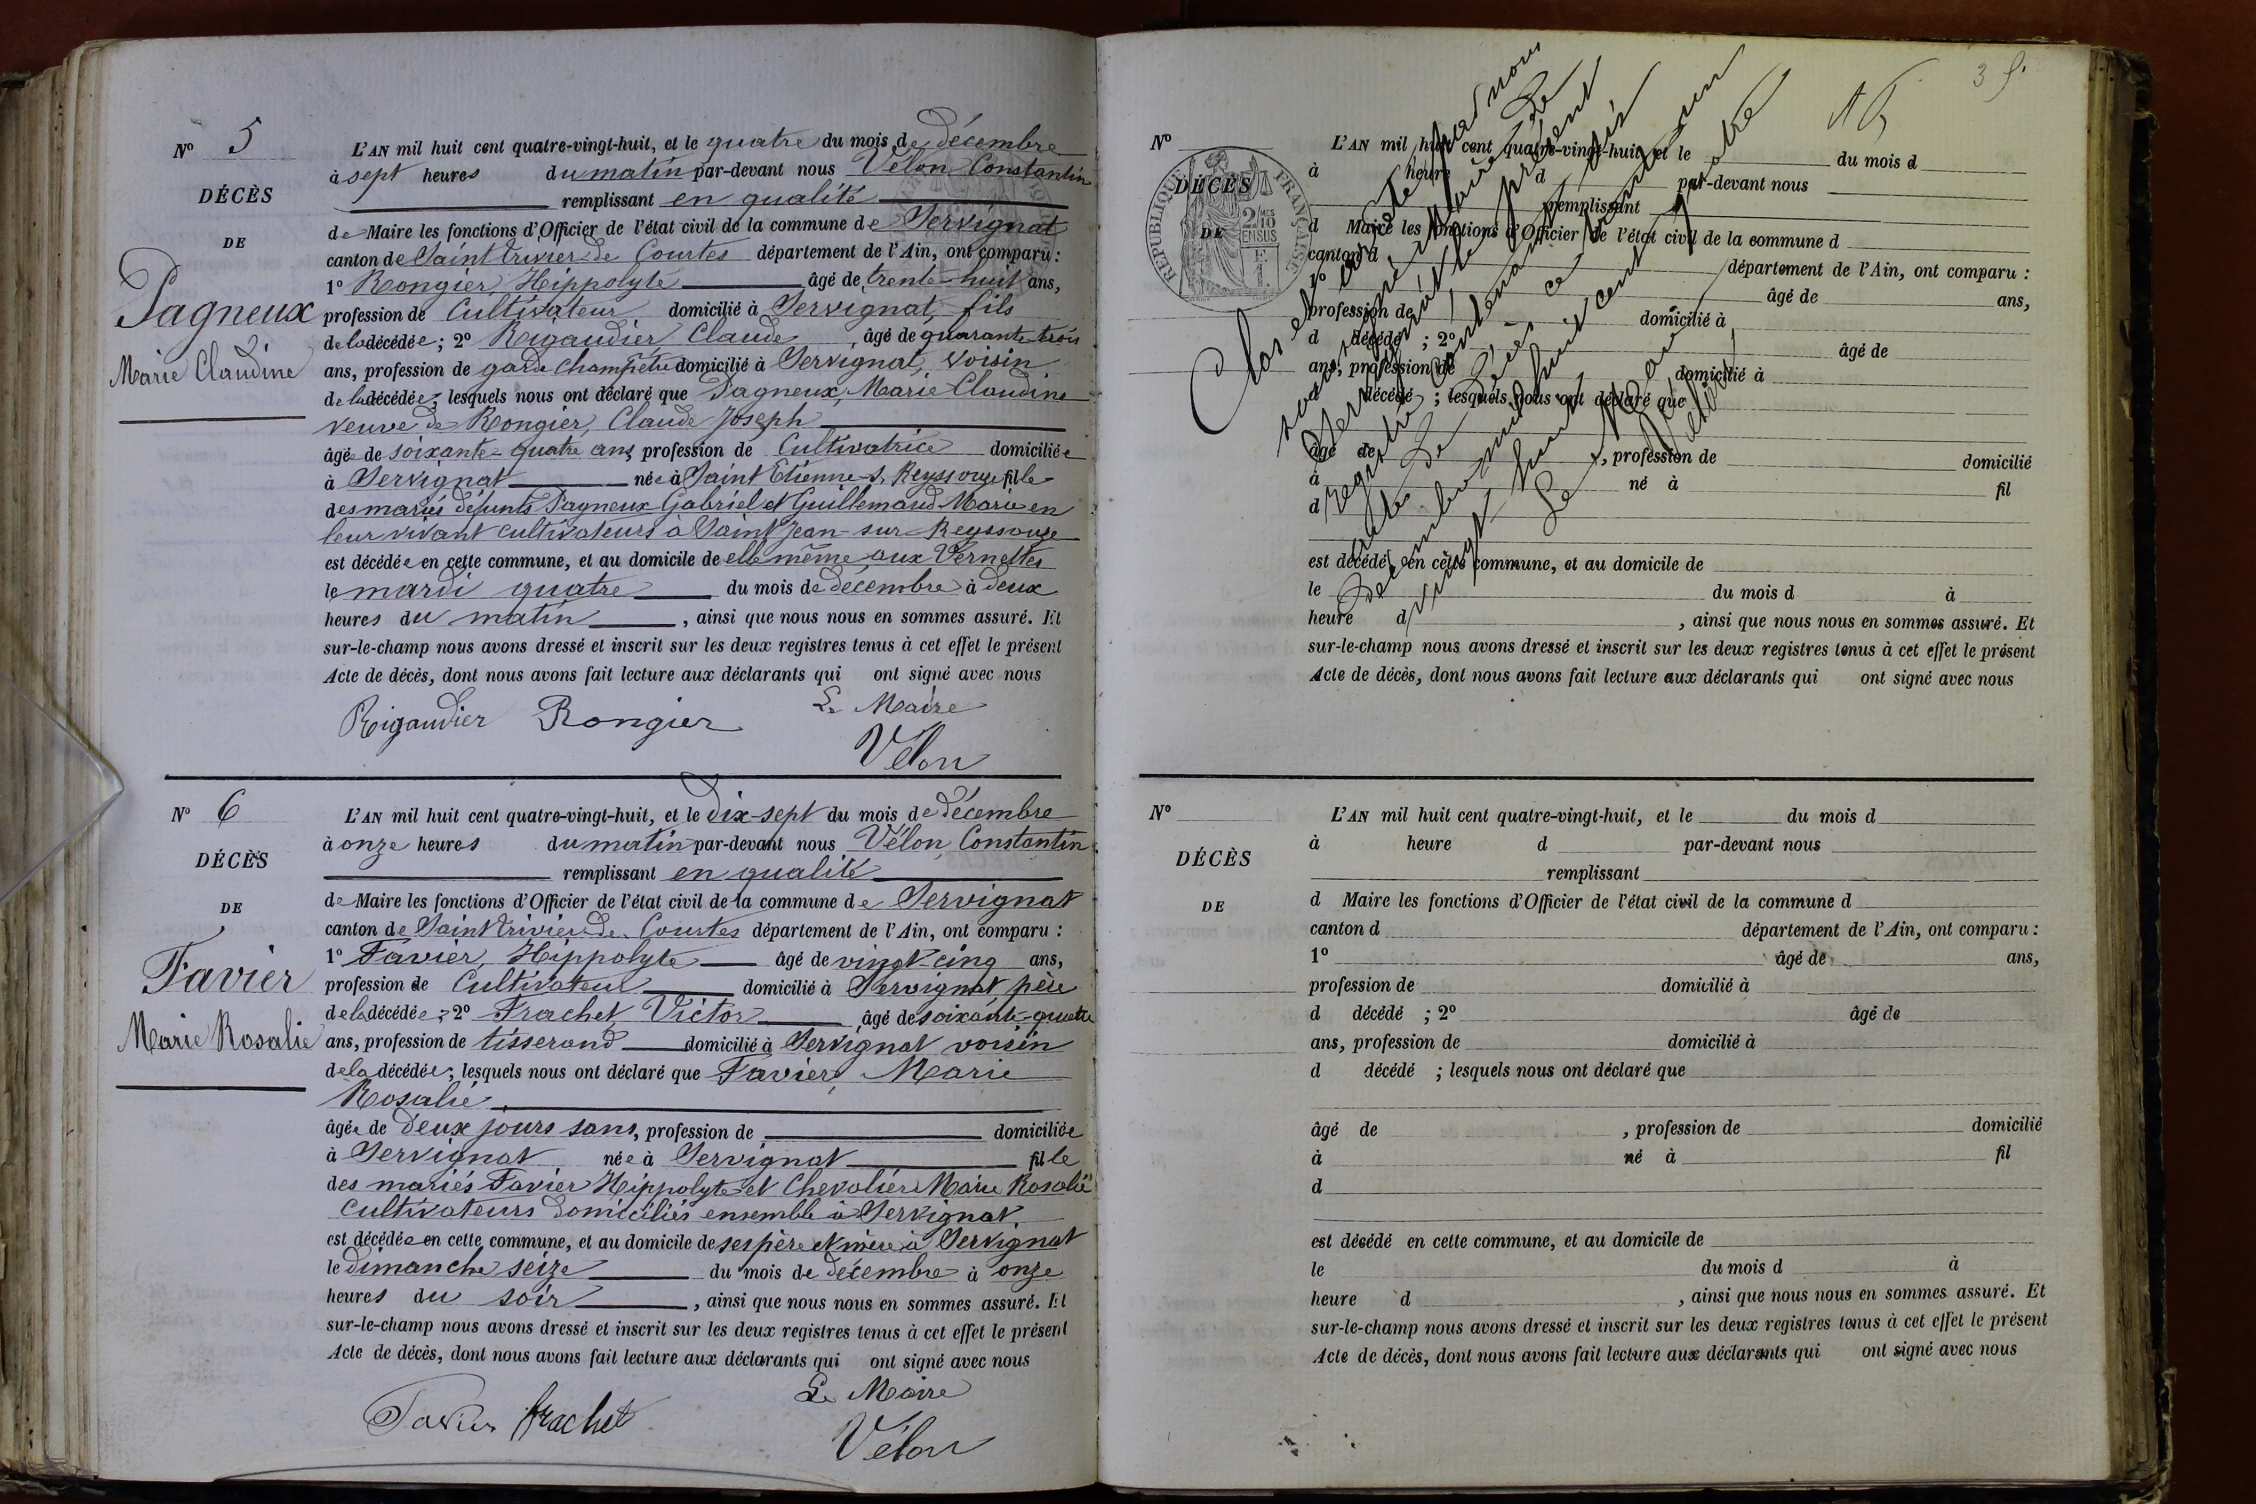 N° 5
DÉCÈS
DE
Pagneux
Marie Claudine
L'AN mil huit cent quatre-vingt-huit, et le quatre du mois de décembre
à sept heures du matin par-devant nous Vélon Constantin
remplissant en qualité
de Maire les fonctions d'Officier de l'état civil de la commune de Servignat
canton de Saint Trivier de Courtes département de l'Ain, ont comparu :
1° Rongier, Hippolyte âgé de trente-huit ans,
profession de Cultivateur domicilié à Servignat, fils
de la décédée ; 2° Rigaudier Claude, âgé de quarante-trois
ans, profession de garde champêtre domicilié à Servignat, voisin
de la décédée ; lesquels nous ont déclaré que Pagneux, Marie Claudine
veuve de Rongier, Claude Joseph
âgée de soixante-quatre ans, profession de Cultivatrice domiciliée
à Servignat née à Saint Etienne-s, Reyssouze fille
des mariés défunts Pagneux Gabriel et Guillemaud Marie en
leur vivant cultivateurs à Saint Jean-sur-Reyssouze
est décédée en cette commune, et au domicile de elle même aux Vernettes
le mardi quatre du mois de décembre à deux
heures du matin, ainsi que nous nous en sommes assuré. Et
sur-le-champ nous avons dressé et inscrit sur les deux registres tenus à cet effet le présent
Acte de décès, dont nous avons fait lecture aux déclarants qui ont signé avec nous
Le Maire
Rigaudier Rongier
Vélon
N° 6
DÉCÈS
DE
Favier
Marie Rosalie
L'AN mil huit cent quatre-vingt-huit, et le dix-sept du mois de décembre
à onze heures du matin par-devant nous Vélon, Constantin
remplissant en qualité
de Maire les fonctions d'Officier de l'état civil de la commune de Servignat
canton de Saint Trivier de Courtes département de l'Ain, ont comparu :
1° Favier, Hippolyte âgé de vingt-cinq ans,
profession de Cultivateur domicilié à Servignat, père
de la décédée ; 2° Frachet, Victor, âgé de soixante-quatre
ans, profession de tisserand domicilié à Servignat voisin
de la décédée ; lesquels nous ont déclaré que Favier, Marie
Rosalie
âgée de deux jours sans, profession de domiciliée
à Servignat née à Servignat fille
des mariés Favier Hippolyte et Chevalier Marie Rosalie
Cultivateurs domiciliés ensemble à Servignat.
est décédée en cette commune, et au domicile de ses père et mère à Servignat
le dimanche seize du mois de décembre à onze
heures du soir, ainsi que nous nous en sommes assuré. Et
sur-le-champ nous avons dressé et inscrit sur les deux registres tenus à cet effet le présent
Acte de décès, dont nous avons fait lecture aux déclarants qui ont signé avec nous
Le Maire
Favier Frachet
Vélon
N°
DÉCÈS
DE
RÉPUBLIQUE FRANÇAISE
2/10
EN SUS
L'AN mil huit cent quatre-vingt-huit, et le du mois d
à heure d par-devant nous
remplissant
d Maire les fonctions d'Officier de l'état civil de la commune d
canton d département de l'Ain, ont comparu :
1° âgé de ans,
profession de domicilié à
d décédé ; 2° âgé de
ans, profession de domicilié à
décédé ; lesquels nous ont déclaré que
âgé de, profession de domicilié
à né à fil
d
est décédé en cette commune, et au domicile de
le du mois d à
heure d, ainsi que nous nous en sommes assuré. Et
sur-le-champ nous avons dressé et inscrit sur les deux registres tenus à cet effet le présent
Acte de décès, dont nous avons fait lecture aux déclarants qui ont signé avec nous
Clos et arrêté par nous
maire de
Servignat le présent
registre contenant six
actes de décès ce
décembre mil huit cent quatre
vingt-huit
Le Maire
Vélon
N°
DÉCÈS
DE
L'AN mil huit cent quatre-vingt-huit, et le du mois d
à heure d par-devant nous
remplissant
d Maire les fonctions d'Officier de l'état civil de la commune d
canton d département de l'Ain, ont comparu :
1° âgé de ans,
profession de domicilié à
d décédé ; 2° âgé de
ans, profession de domicilié à
d décédé ; lesquels nous ont déclaré que
âgé de, profession de domicilié
à né à fil
d
est décédé en cette commune, et au domicile de
le du mois d à
heure d, ainsi que nous nous en sommes assuré. Et
sur-le-champ nous avons dressé et inscrit sur les deux registres tenus à cet effet le présent
Acte de décès, dont nous avons fait lecture aux déclarants qui ont signé avec nous